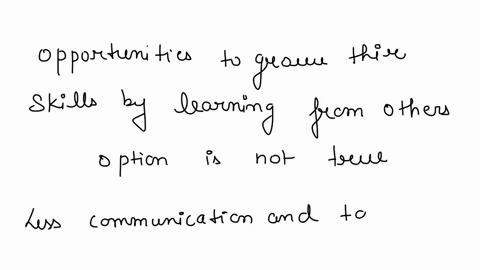 opportunities to grow thire
skills by learning from others
option is not true
less communication and to